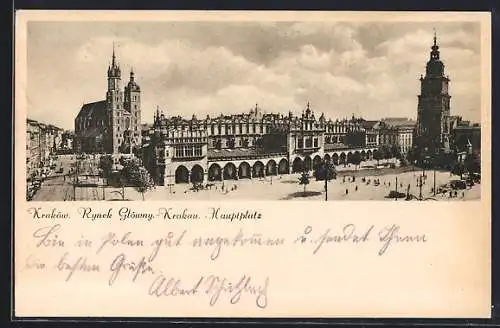 Kraków. Rynek Główny. Krakau. Hauptplatz
Bin in Polen gut angekommen u. sendet Ihnen
die besten Grüße
Albert Schützbach